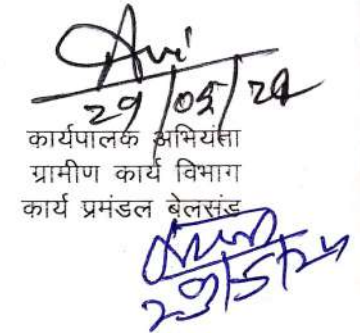 29/05/24
कार्यपालक अभियंता
ग्रामीण कार्य विभाग
कार्य प्रमंडल बेलसंड
29/5/24